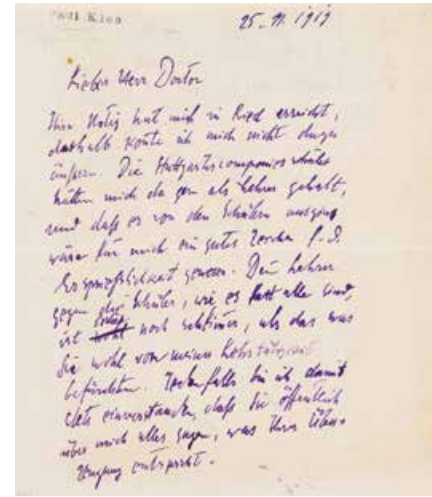 Paul Klee
25. 11. 1919
Lieber Herr Doctor
Ihre Notiz hat mich in Ried erreicht,
deshalb konte ich mich nicht
äussern. Die
hätten mich da gern als Lehrer gehabt,
und daß es von den Schülern ausging
wäre für mich ein gutes Zeichen f. d.
Ersprieslichkeit gewesen. Den Lehrer
gegen Schüler, wie es fast alle sind,
ist noch schlimer, als das was
Sie wohl von meiner Lehrtätigkeit
befürchten. Jedenfalls bin ich damit
stets einverstanden, daß Sie öffentlich
über mich alles sagen, was Ihrer Über-
zeugung entspricht.